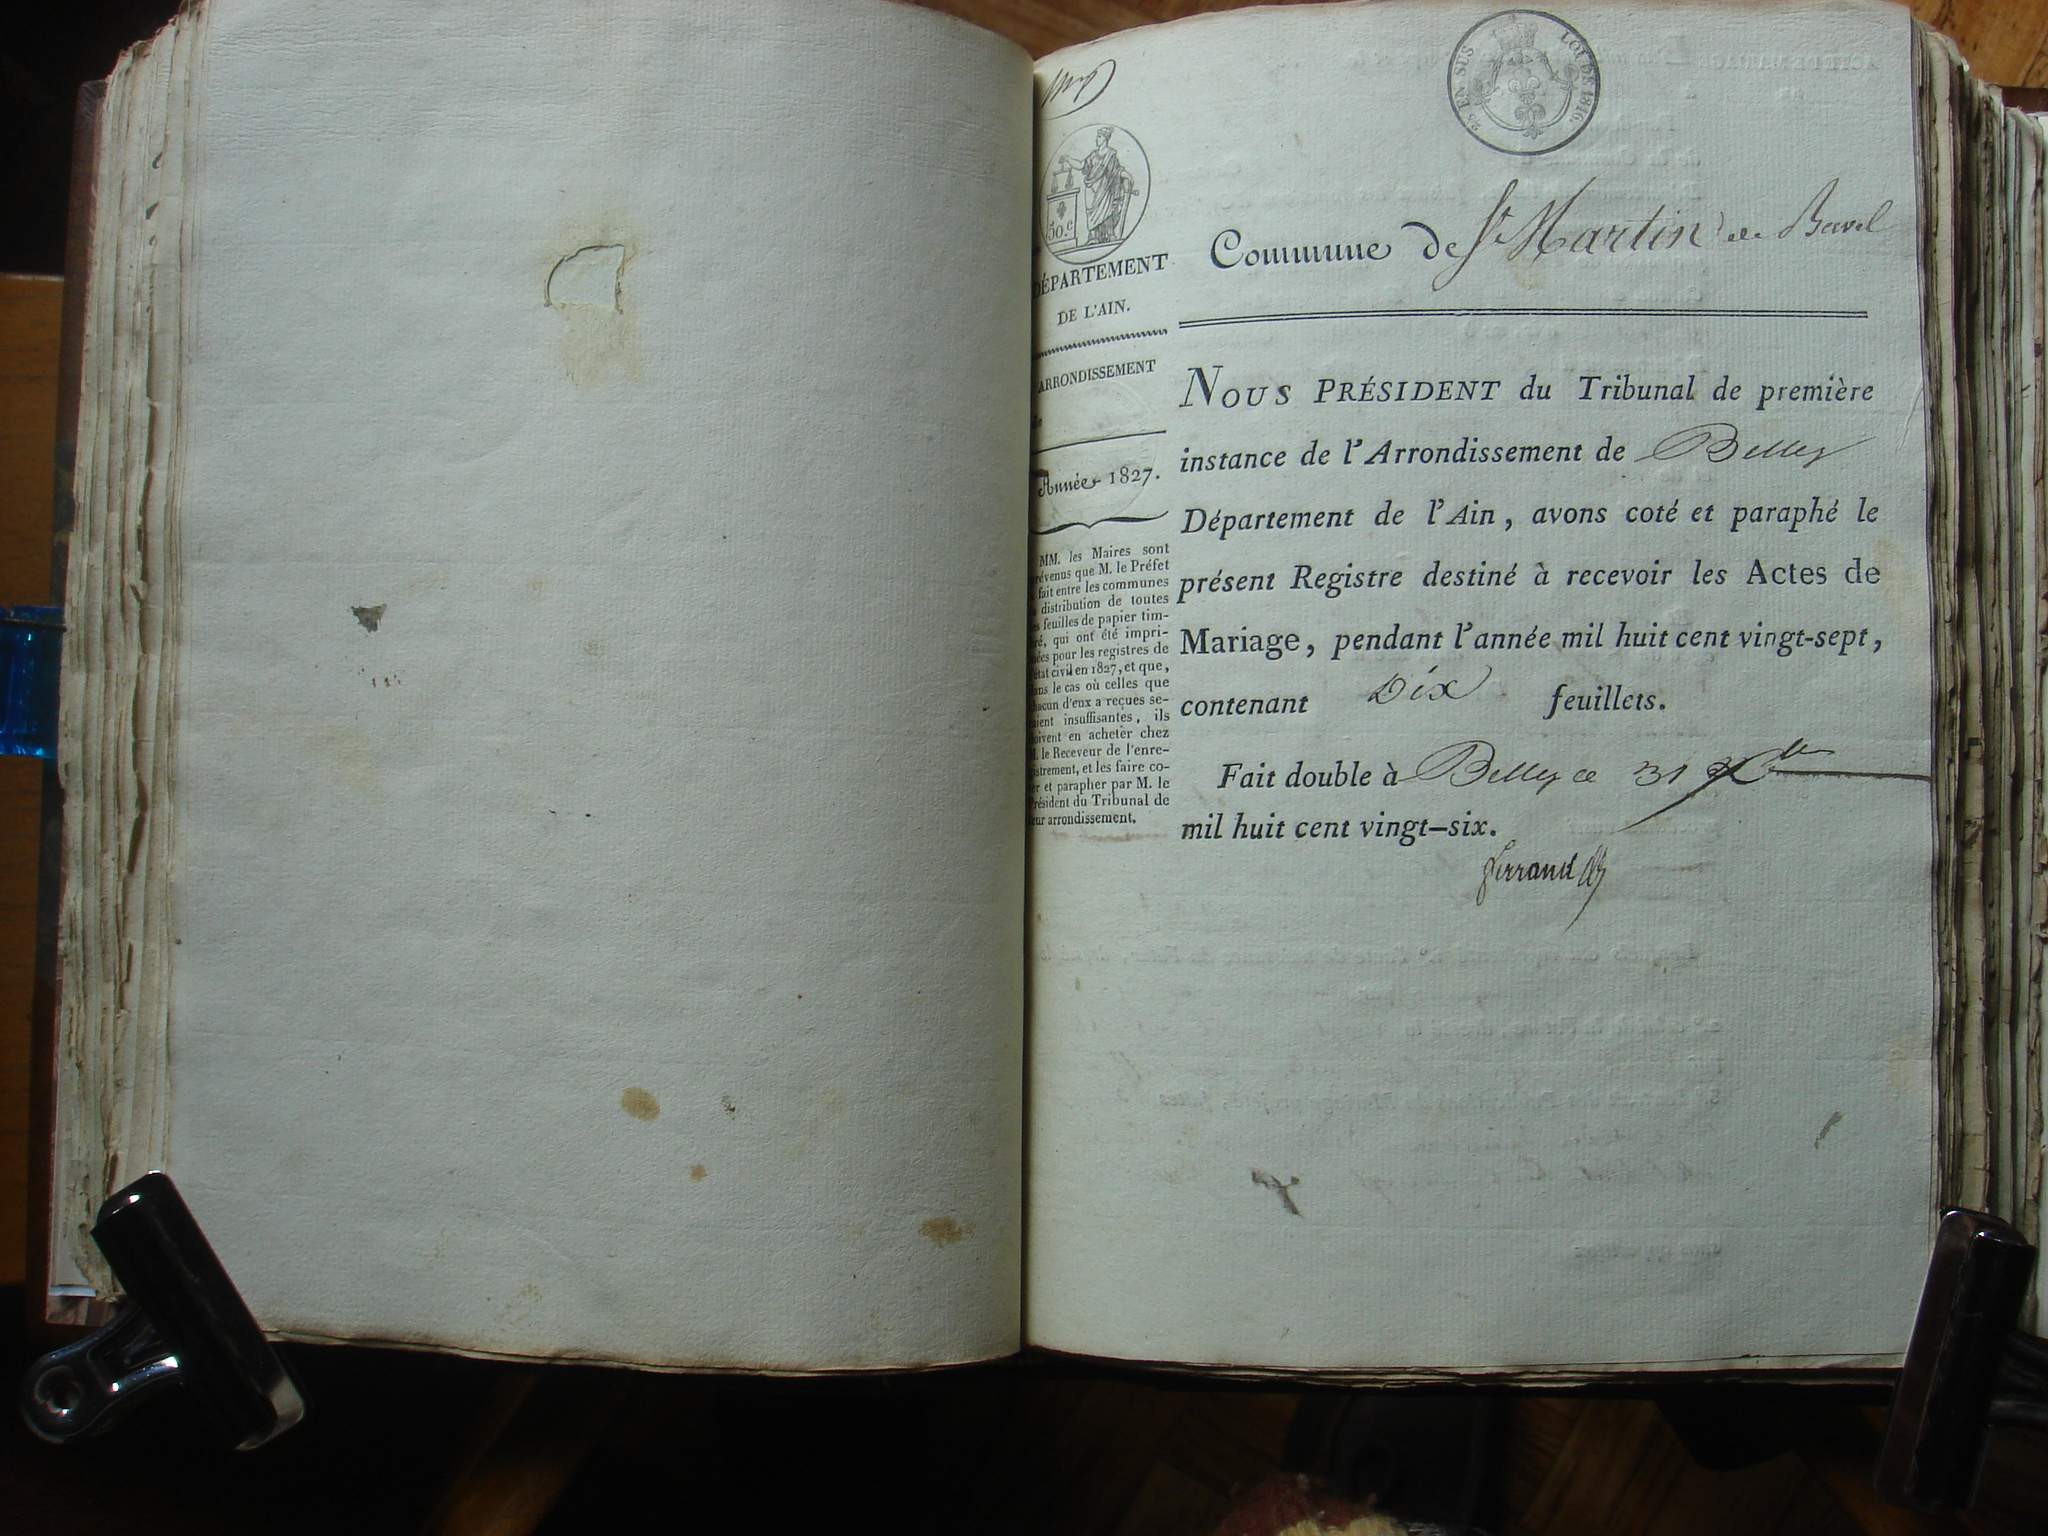 25 EN SUS
LOI DE 1816.
50.c
DÉPARTEMENT
DE L'AIN.
ARRONDISSEMENT
de
Année 1827.
MM. les Maires sont
prévenus que M. le Préfet
fait entre les communes
distribution de toutes
les feuilles de papier tim-
bré, qui ont été impri-
mées pour les registres de
l'état civil en 1827, et que,
dans le cas où celles que
chacun d'eux a reçues se-
raient insuffisantes, ils
doivent en acheter chez
M. le Receveur de l'enre-
gistrement, et les faire co-
ter et parapher par M. le
Président du Tribunal de
leur arrondissement.
Commune de St Martin de Bavel
NOUS PRÉSIDENT du Tribunal de première
instance de l'Arrondissement de Belley
Département de l'Ain, avons coté et paraphé le
présent Registre destiné à recevoir les Actes de
Mariage, pendant l'année mil huit cent vingt-sept,
contenant Dix feuillets.
Fait double à Belley ce 31 Xbre
mil huit cent vingt-six.